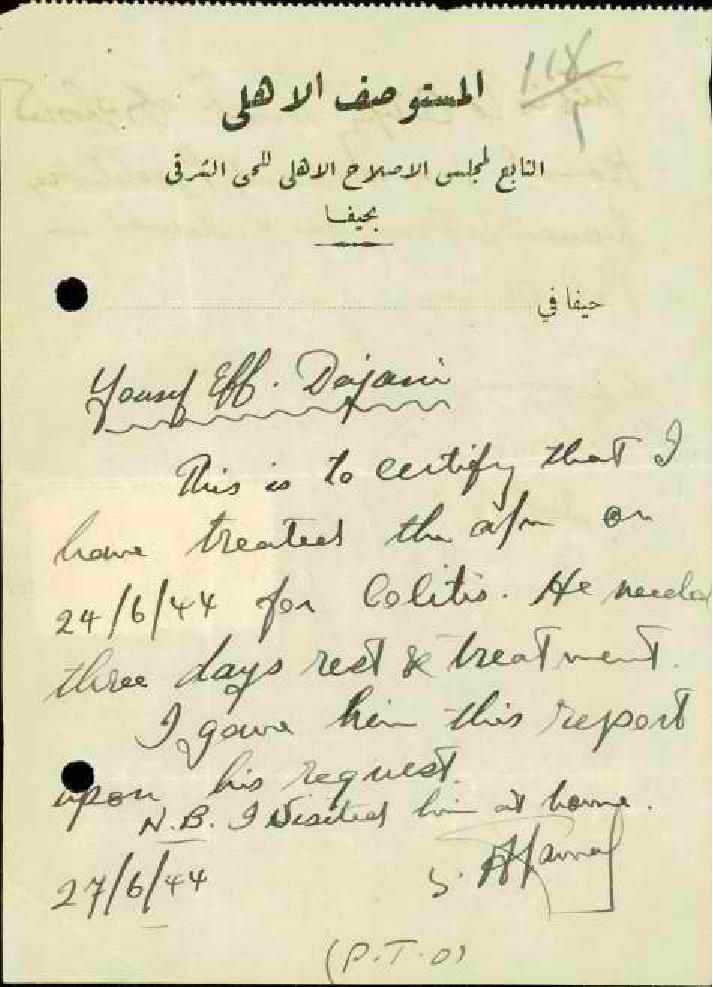 118
1
المستوصف الاهلى
التابع لمجلس الاصلاح الاهلى للحى الشرقى
بحيفا
حيفا في
Yousf Eff. Dajani
This is to certify that I
have treated the a/m on
24/6/44 for Colitis. He needed
three days rest & treatment.
I gave him this report
upon his request.
N.B. I Visited him at home.
27/6/44
S.
(P.T.O)